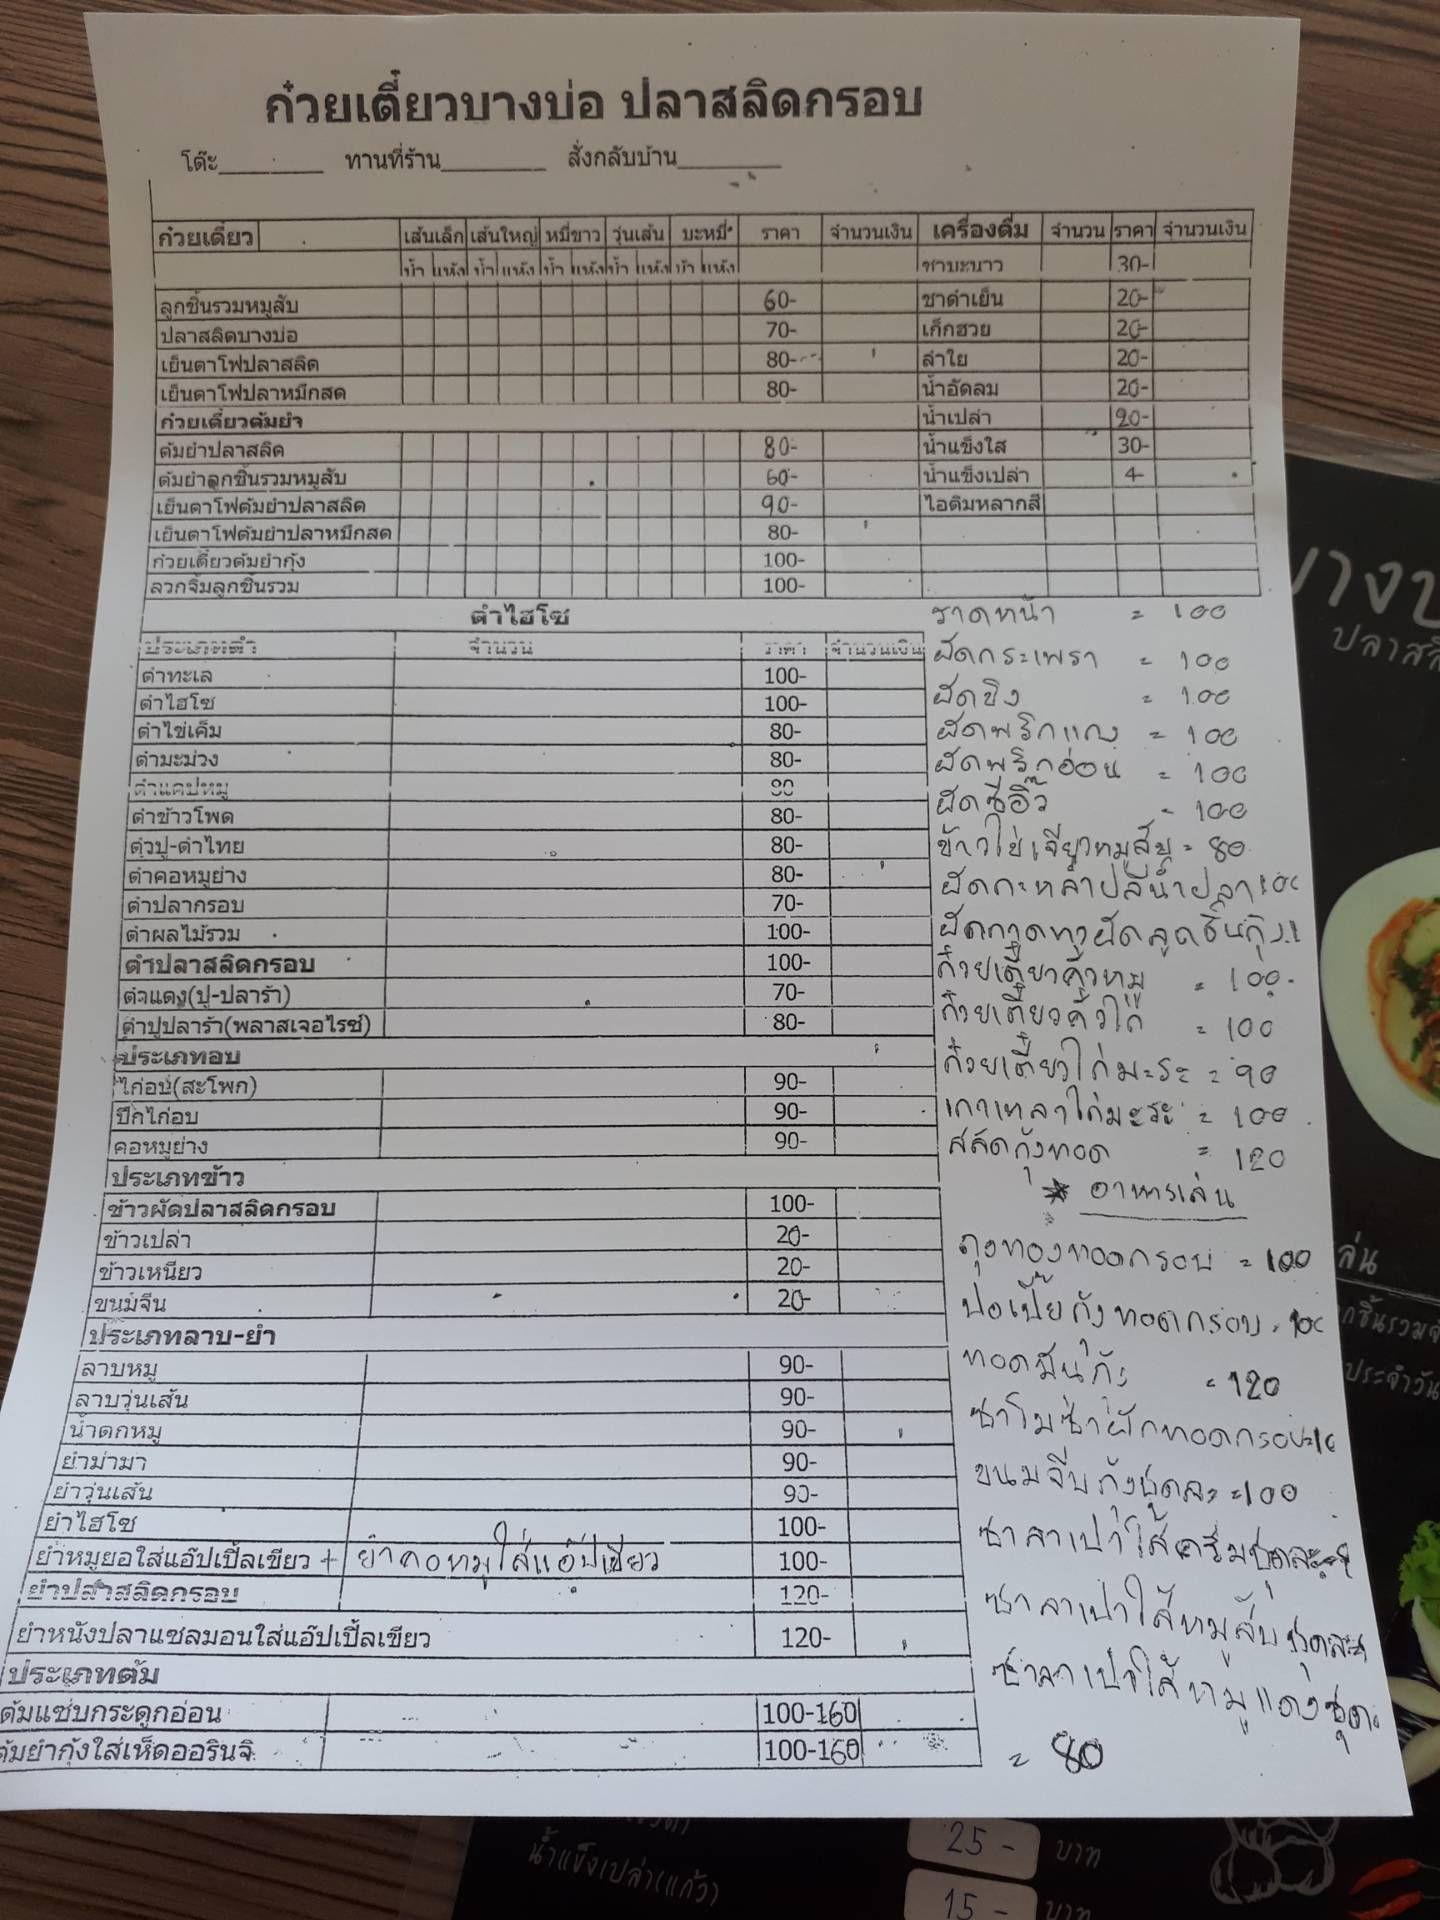 ก๋วยเตี๋ยวบางบ่อ ปลาสลิดกรอบ
โต๊ะ________ ทานที่ร้าน________ สั่งกลับบ้าน________
ก๋วยเตี๋ยว เส้นเล็ก เส้นใหญ่ หมี่ขาว วุ่นเส้น บะหมี่ ราคา จำนวนเงิน เครื่องดื่ม จำนวน ราคา จำนวนเงิน
น้ำ แห้ง น้ำ แห้ง น้ำ แห้ง น้ำ แห้ง น้ำ แห้ง ชามะนาว 30-
ลูกชิ้นรวมหมูสับ 60- ชาดำเย็น 20-
ปลาสลิดบางบ่อ 70- เก็กฮวย 20-
เย็นตาโฟปลาสลิด 80- ลำใย 20-
เย็นตาโฟปลาหมึกสด 80- น้ำอัดลม 20-
ก๋วยเตี๋ยวต้มยำ น้ำเปล่า 20-
ต้มยำปลาสลิด 80- น้ำแข็งใส 30-
ต้มยำลูกชิ้นรวมหมูสับ 60- น้ำแข็งเปล่า 4-
เย็นตาโฟต้มยำปลาสลิด 90- ไอติมหลากสี
เย็นตาโฟต้มยำปลาหมึกสด 80-
ก๋วยเตี๋ยวต้มยำกุ้ง 100-
ลวกจิ้มลูกชิ้นรวม 100-
ตำไฮโซ
ประเภทตำ จำนวน ราคา จำนวนเงิน
ตำทะเล 100-
ตำไฮโซ 100-
ตำไข่เค็ม 80-
ตำมะม่วง 80-
ตำแคปหมู 80
ตำข้าวโพด 80-
ตำปู-ตำไทย 80-
ตำคอหมูย่าง 80-
ตำปลากรอบ 70-
ตำผลไม้รวม 100-
ตำปลาสลิดกรอบ 100-
ตำแดง(ปู-ปลาร้า) 70-
ตำปูปลาร้า(พลาสเจอไรซ์) 80-
ประเภทอบ
ไก่อบ(สะโพก) 90-
ปีกไก่อบ 90-
คอหมูย่าง 90-
ประเภทข้าว
ข้าวผัดปลาสลิดกรอบ 100-
ข้าวเปล่า 20-
ข้าวเหนียว 20-
ขนมจีน 20-
ประเภทลาบ-ยำ
ลาบหมู 90-
ลาบวุ่นเส้น 90-
น้ำตกหมู 90-
ยำม่าม่า 90-
ยำวุ่นเส้น 90-
ยำไฮโซ 100-
ยำหมูยอใส่แอ๊ปเปิ้ลเขียว + ยำคอหมูใส่แอ๊ปเขียว 100-
ยำปลาสลิดกรอบ 120-
ยำหนังปลาแซลมอนใส่แอ๊ปเปิ้ลเขียว 120-
ประเภทต้ม
ต้มแซ่บกระดูกอ่อน 100-160
ต้มยำกุ้งใส่เห็ดออรินจิ 100-160
ราดหน้า = 100
ผัดกระเพรา = 100
ผัดขิง = 100
ผัดพริกแกง = 100
ผัดพริกอ่อน = 100
ผัดซีอิ๊ว = 100
ข้าวไข่เจียวหมูสับ = 80
ผัดกะหล่ำปลีน้ำปลา 100
ก๋วยเตี๋ยวคั่วหมู = 100-
ก๋วยเตี๋ยวคั่วไก่ = 100
ก๋วยเตี๋ยวไก่มะระ = 90
เกาเหลาไก่มะระ = 100
สลัดกุ้งทอด = 120
* อาหารเล่น
ถุงทองทอดกรอบ = 100
ปอเปี๊ยกุ้งทอดกรอบ = 100
ทอดมันกุ้ง = 120
ซาโมซ่าผักทอดกรอบ
ขนมจีบกุ้งชุดละ = 100
ซาลาเปาไส้ครีมชุดละ
ซาลาเปาไส้หมูสับชุดละ
ซาลาเปาไส้หมูแดงชุด
= 80
ปลาสลิ
ประจำวัน
25 - บาท
น้ำแข็งเปล่า(แก้ว)
15 - บาท